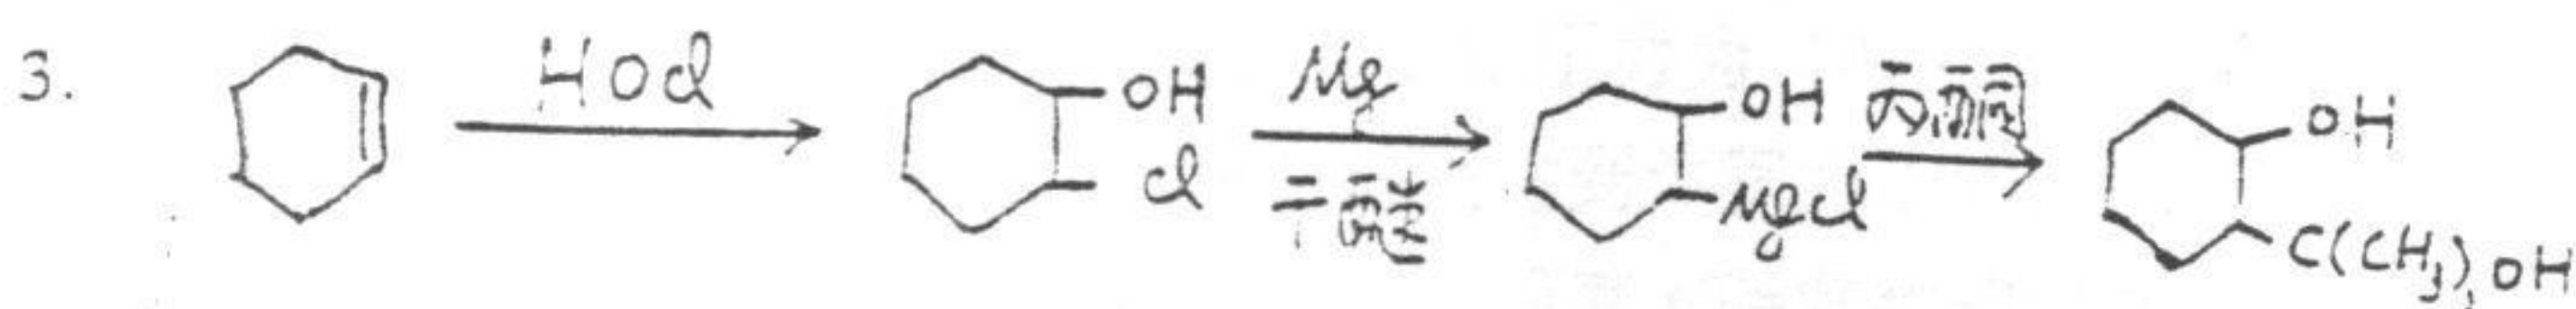 3.
HOCl
OH
Cl
Mg
干醚
OH
MgCl
丙酮
OH
C(CH₃)₂OH